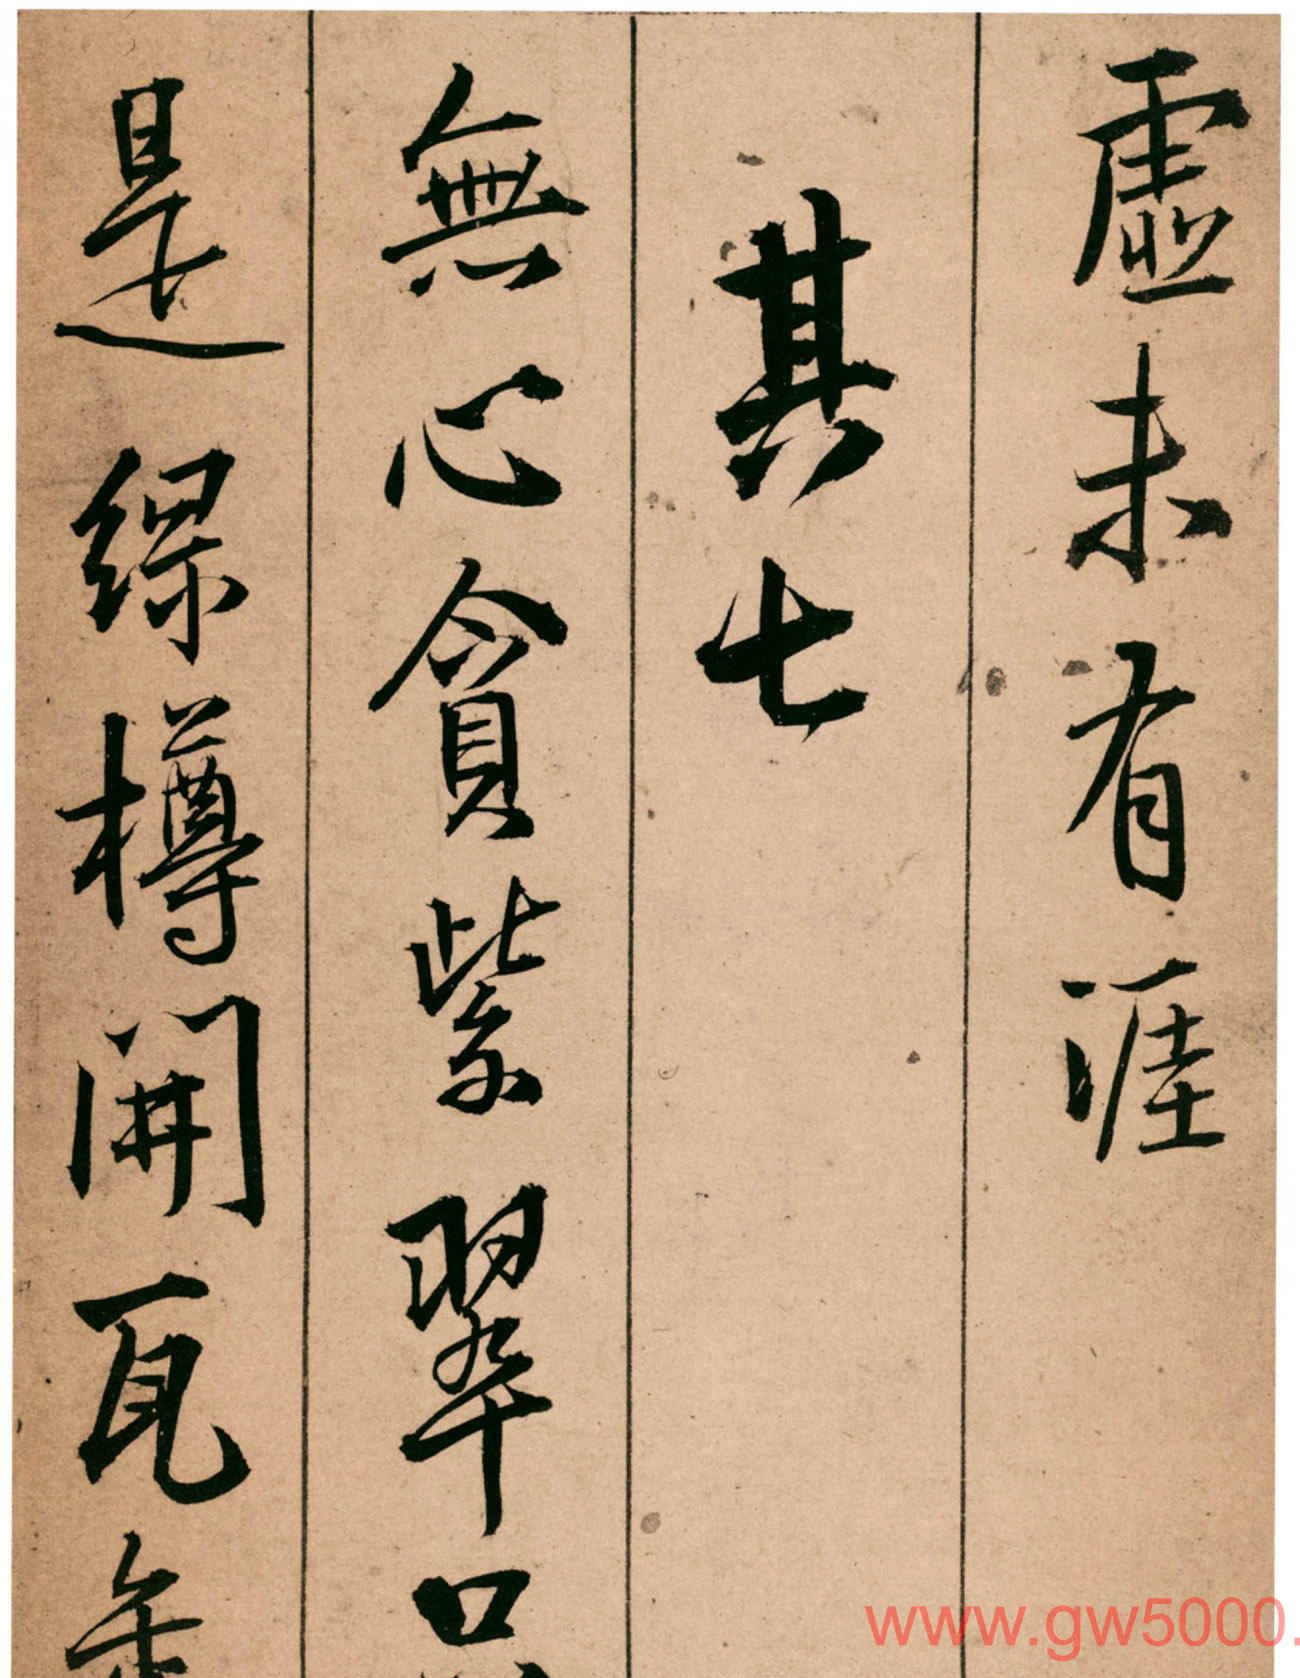 虛未有涯
其七
無心貪紫翠
是綠樽開瓦
www.gw5000.